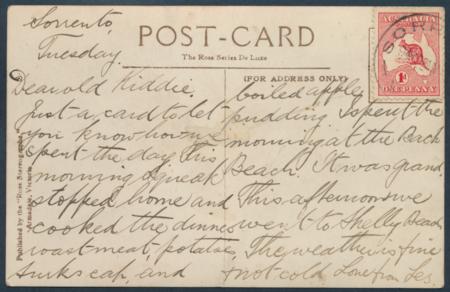 Sorrento,
Tuesday.
POST-CARD
The Rose Series De Luxe
(FOR ADDRESS ONLY)
AUSTRALIA
ONE PENNY
1D
SORR
Published by the "Rose Stereographs"
Armadale, Victoria
Dear old Kiddie.
Just a card to let
you know how we
spent the day. This
morning
stopped home and
cooked the dinner
roast meat, potatoe,
and
boiled apple
pudding. I spent the
morning at the Back
Beach. It was grand.
This afternoon we
went to Shelly Beach
The weather is fine
+ not cold. Love from Les.